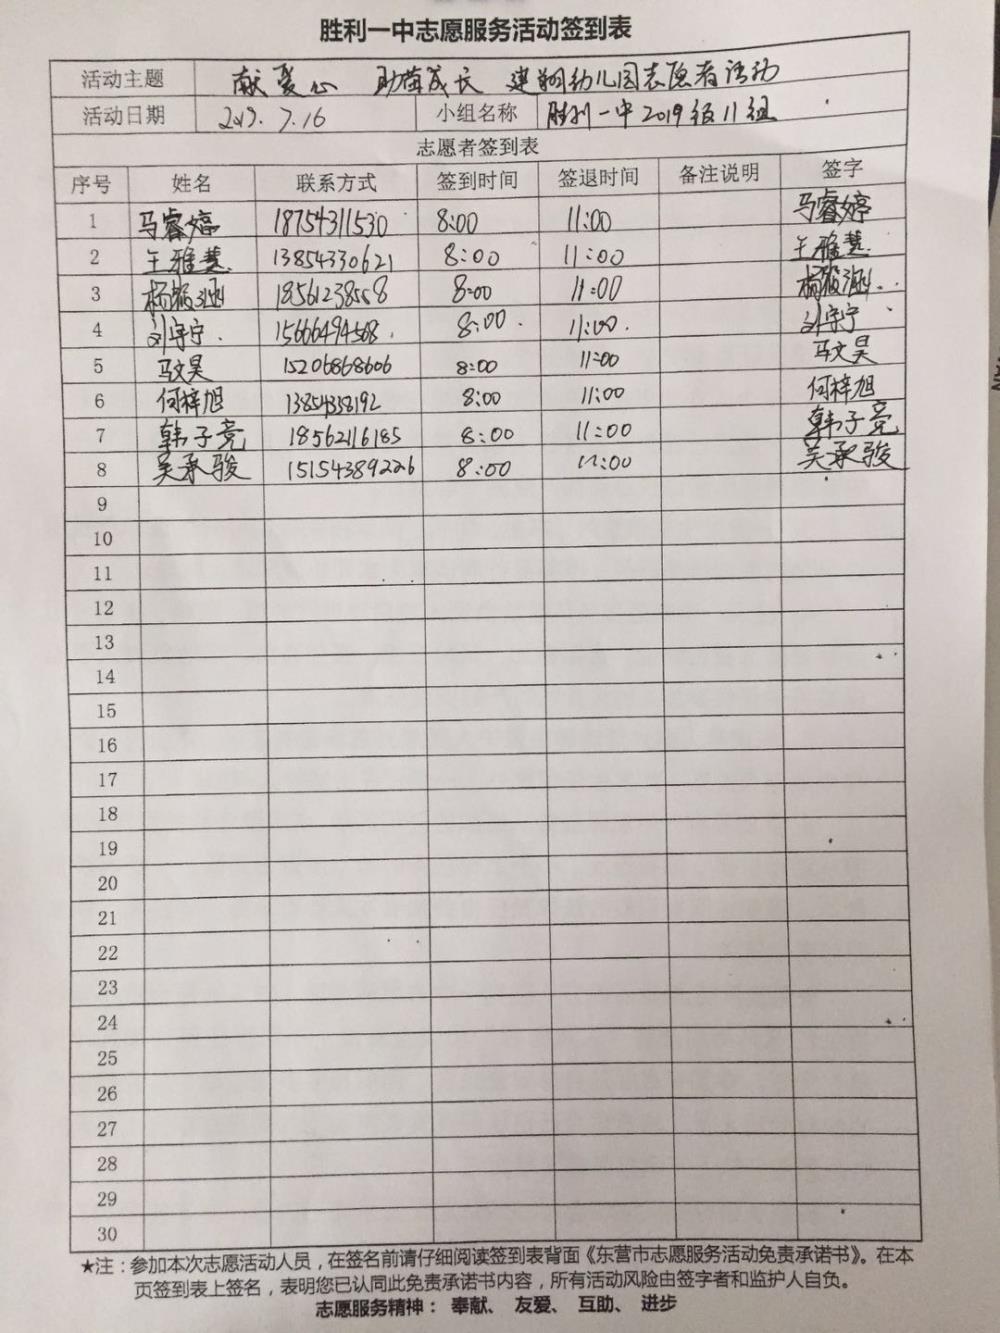 胜利一中志愿服务活动签到表
活动主题 献爱心 助苗成长 建翔幼儿园志愿者活动
活动日期 2019.7.16 小组名称 胜利一中2019级11组
志愿者签到表
序号 姓名 联系方式 签到时间 签退时间 备注说明 签字
1 马睿婷 18754311530 8:00 11:00 马睿婷
2 王雅慧 13854330621 8:00 11:00 王雅慧
3 杨涵 18561238558 8:00 11:00 杨涵
4 刘宇宁 15666494508 8:00 11:00 刘宇宁
5 马文昊 15206868606 8:00 11:00 马文昊
6 何梓旭 13854338192 8:00 11:00 何梓旭
7 韩子亮 18562116185 8:00 11:00 韩子亮
8 吴承骏 15154389226 8:00 11:00 吴承骏
9
10
11
12
13
14
15
16
17
18
19
20
21
22
23
24
25
26
27
28
29
30
★注：参加本次志愿活动人员，在签名前请仔细阅读签到表背面《东营市志愿服务活动免责承诺书》。在本
页签到表上签名，表明您已认同此免责承诺书内容，所有活动风险由签字者和监护人自负。
志愿服务精神： 奉献、 友爱、 互助、 进步